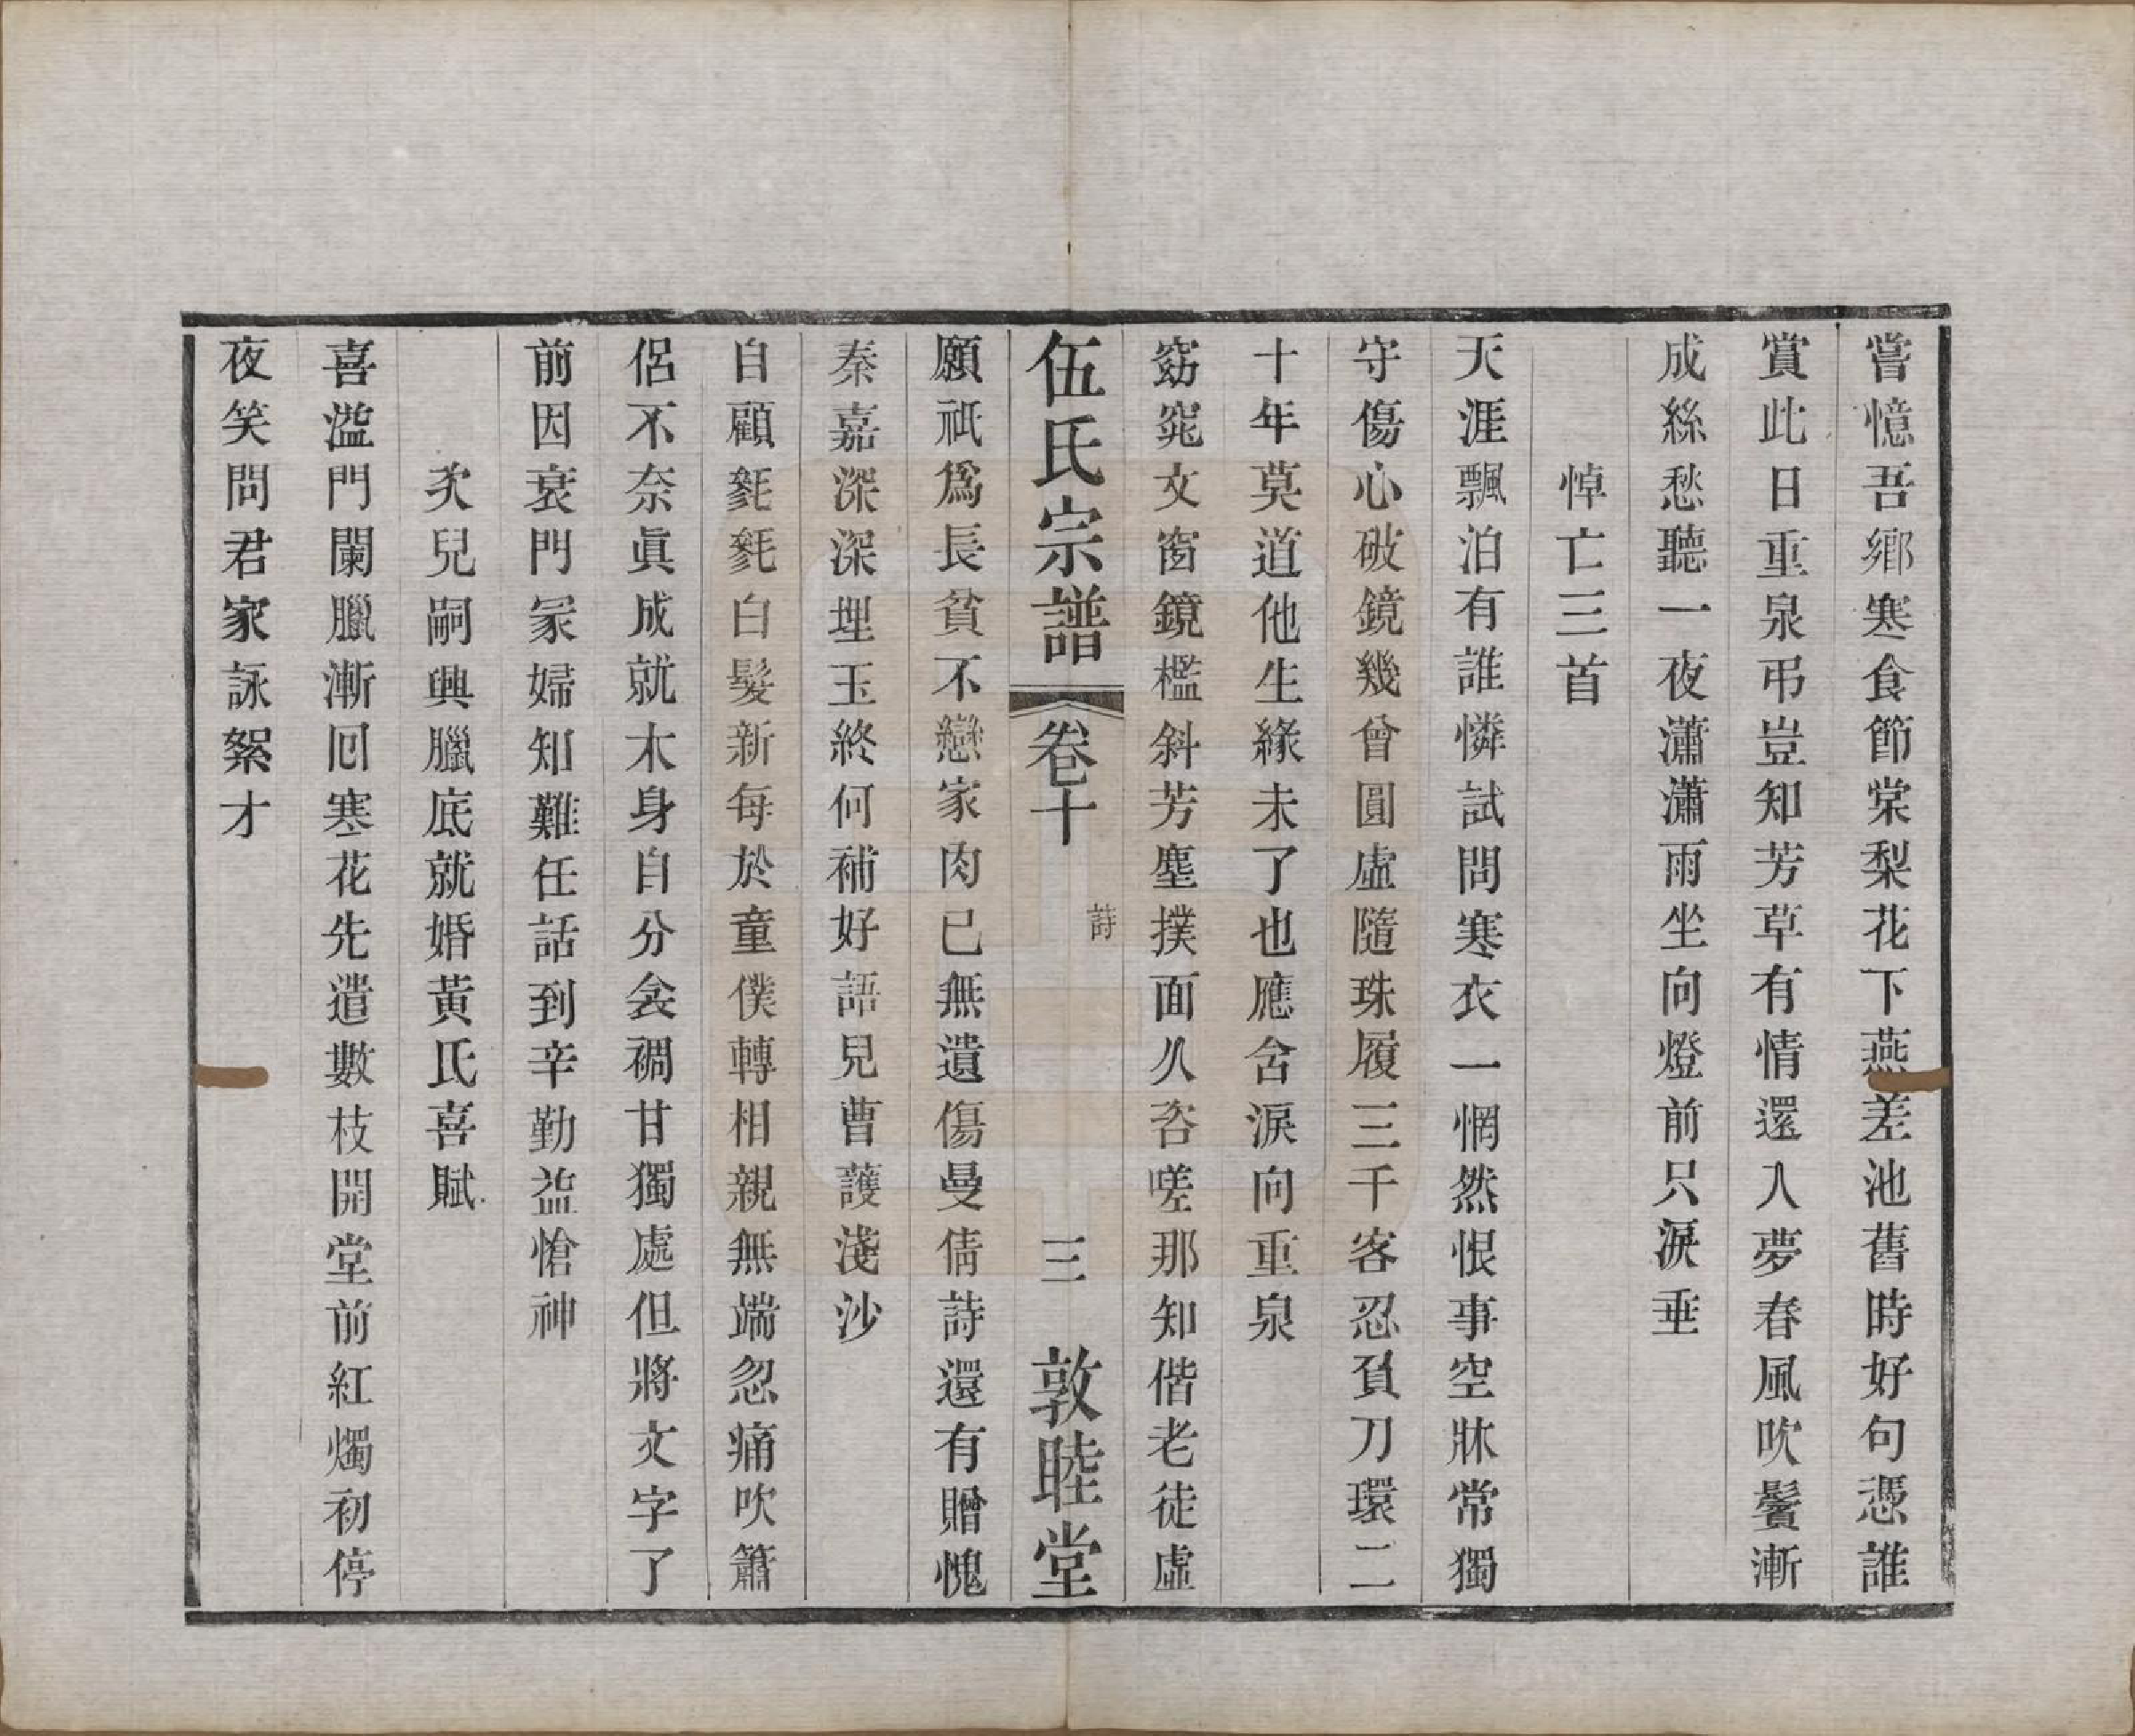 嘗憶吾鄉寒食節棠梨花下燕差池舊時好句憑誰
賞此日重泉弔豈知芳草有情還入夢春風吹鬢漸
成絲愁聽一夜瀟瀟雨坐向燈前只淚垂
悼亡三首
天涯飄泊有誰憐試問寒衣一惘然恨事空牀常獨
守傷心破鏡幾曾圓虛隨珠履三千客忍負刀環二
十年莫道他生緣未了也應含淚向重泉
窈窕文窗鏡檻斜芳塵撲面久咨嗟那知偕老徒虛
伍氏宗譜 卷十 詩 三 敦睦堂
願祇爲長貧不戀家肉已無遺傷曼倩詩還有贈愧
秦嘉深深深埋玉終何補好語兒曹護淺沙
自顧毿毿白髮新每於童僕轉相親無端忽痛吹簫
侶不奈眞成就木身自分衾裯甘獨處但將文字了
前因衰門冢婦知難任話到辛勤益愴神
次兒嗣興臘底就婚黃氏喜賦
喜溢門闌臘漸回寒花先遣數枝開堂前紅燭初停
夜笑問君家詠絮才